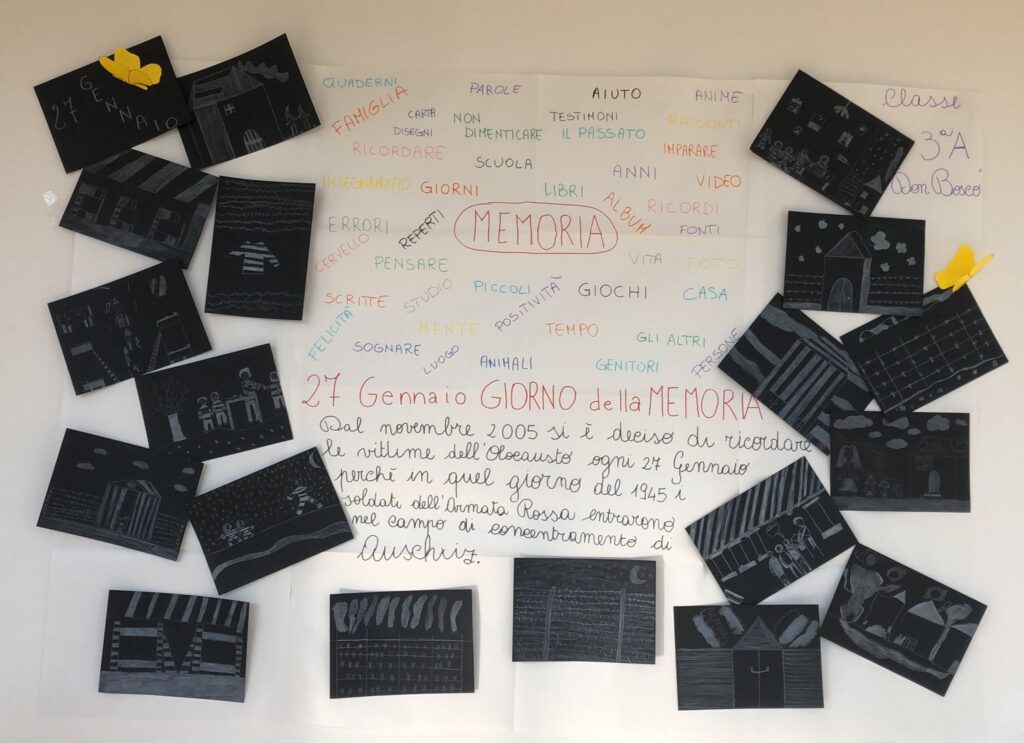 27 GENNAIO
QUADERNI
FAMIGLIA
PAROLE
AIUTO
ANIME
CARTA
DISEGNI
NON
DIMENTICARE
TESTIMONI
IL PASSATO
RACCONTI
RICORDARE
SCUOLA
IMPARARE
INSEGNAMENTO
GIORNI
LIBRI
ANNI
VIDEO
ALBUM
RICORDI
ERRORI
REPERTI
MEMORIA
FONTI
CERVELLO
PENSARE
VITA
FOTO
SCRITTE
STUDIO
PICCOLI
POSITIVITÀ
GIOCHI
CASA
FELICITÀ
MENTE
TEMPO
GLI ALTRI
SOGNARE
LUOGO
ANIMALI
GENITORI
PERSONE
Classe
3ªA
Don Bosco
27 Gennaio GIORNO della MEMORIA
Dal novembre 2005 si è deciso di ricordare
le vittime dell'Olocausto ogni 27 Gennaio
perchè in quel giorno del 1945 i
soldati dell'Armata Rossa entrarono
nel campo di concentramento di
Auschriz.